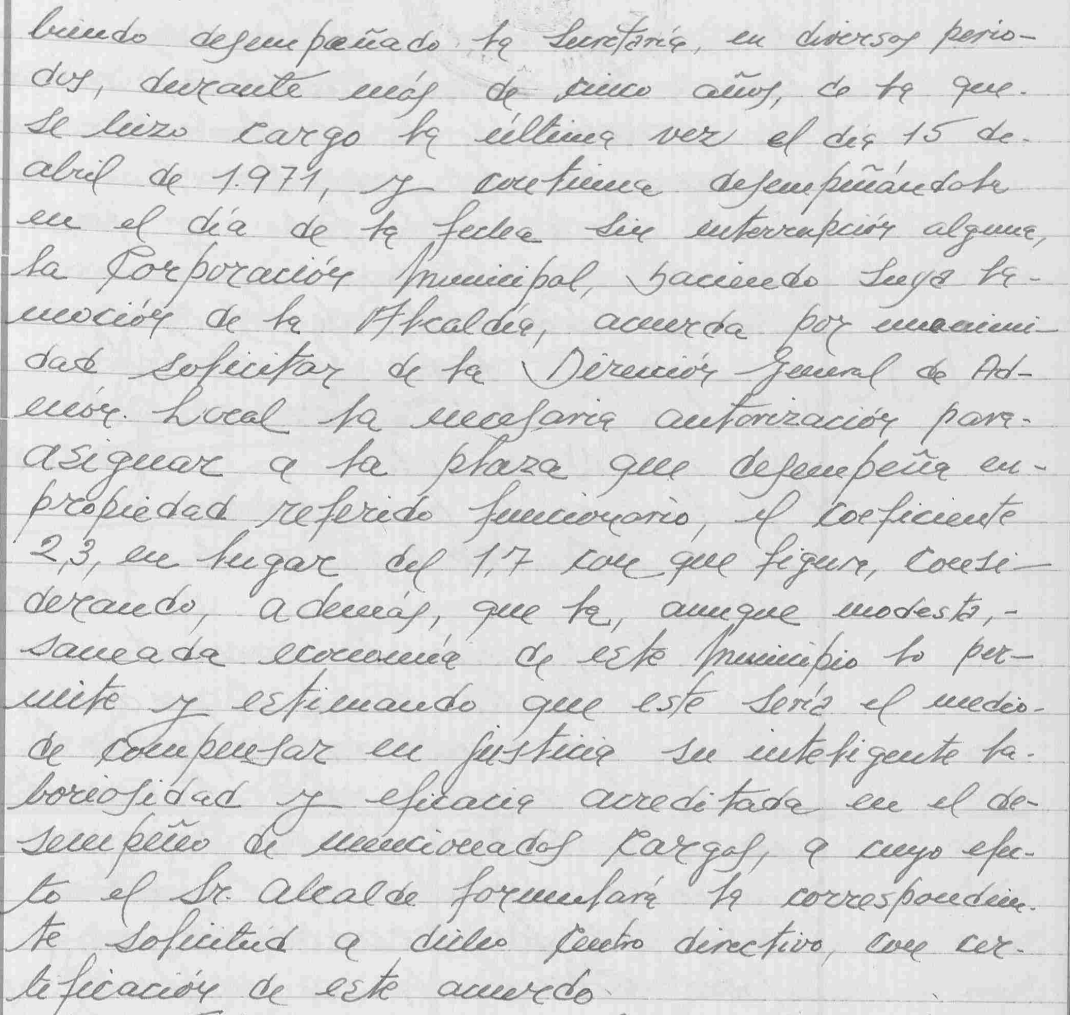 biendo desempeñado la Secretaría, en diversos perio-
dos, durante más de cinco años, de la que-
se hizo cargo la última vez el día 15 de-
abril de 1.971, y continua desempeñándola
en el día de la fecha sin interrupción alguna,
la Corporación Municipal, haciendo suya la-
moción de la Alcaldía, acuerda por unanimi-
dad solicitar de la Dirección General de Ad-
món. Local la necesaria autorización para-
asignar a la plaza que desempeña en-
propiedad referido funcionario, el coeficiente
2,3, en lugar del 1,7 con que figura, consi-
derando, además, que la, aunque modesta,-
saneada economía de este Municipio lo per-
mite y estimando que este sería el medio-
de compensar en justicia su inteligente la-
boriosidad y eficacia acreditada en el de-
sempeño de mencionados cargos, a cuyo efec-
to el Sr. Alcalde formulará la correspondien-
te solicitud a dicho Centro directivo, con cer-
tificación de este acuerdo.